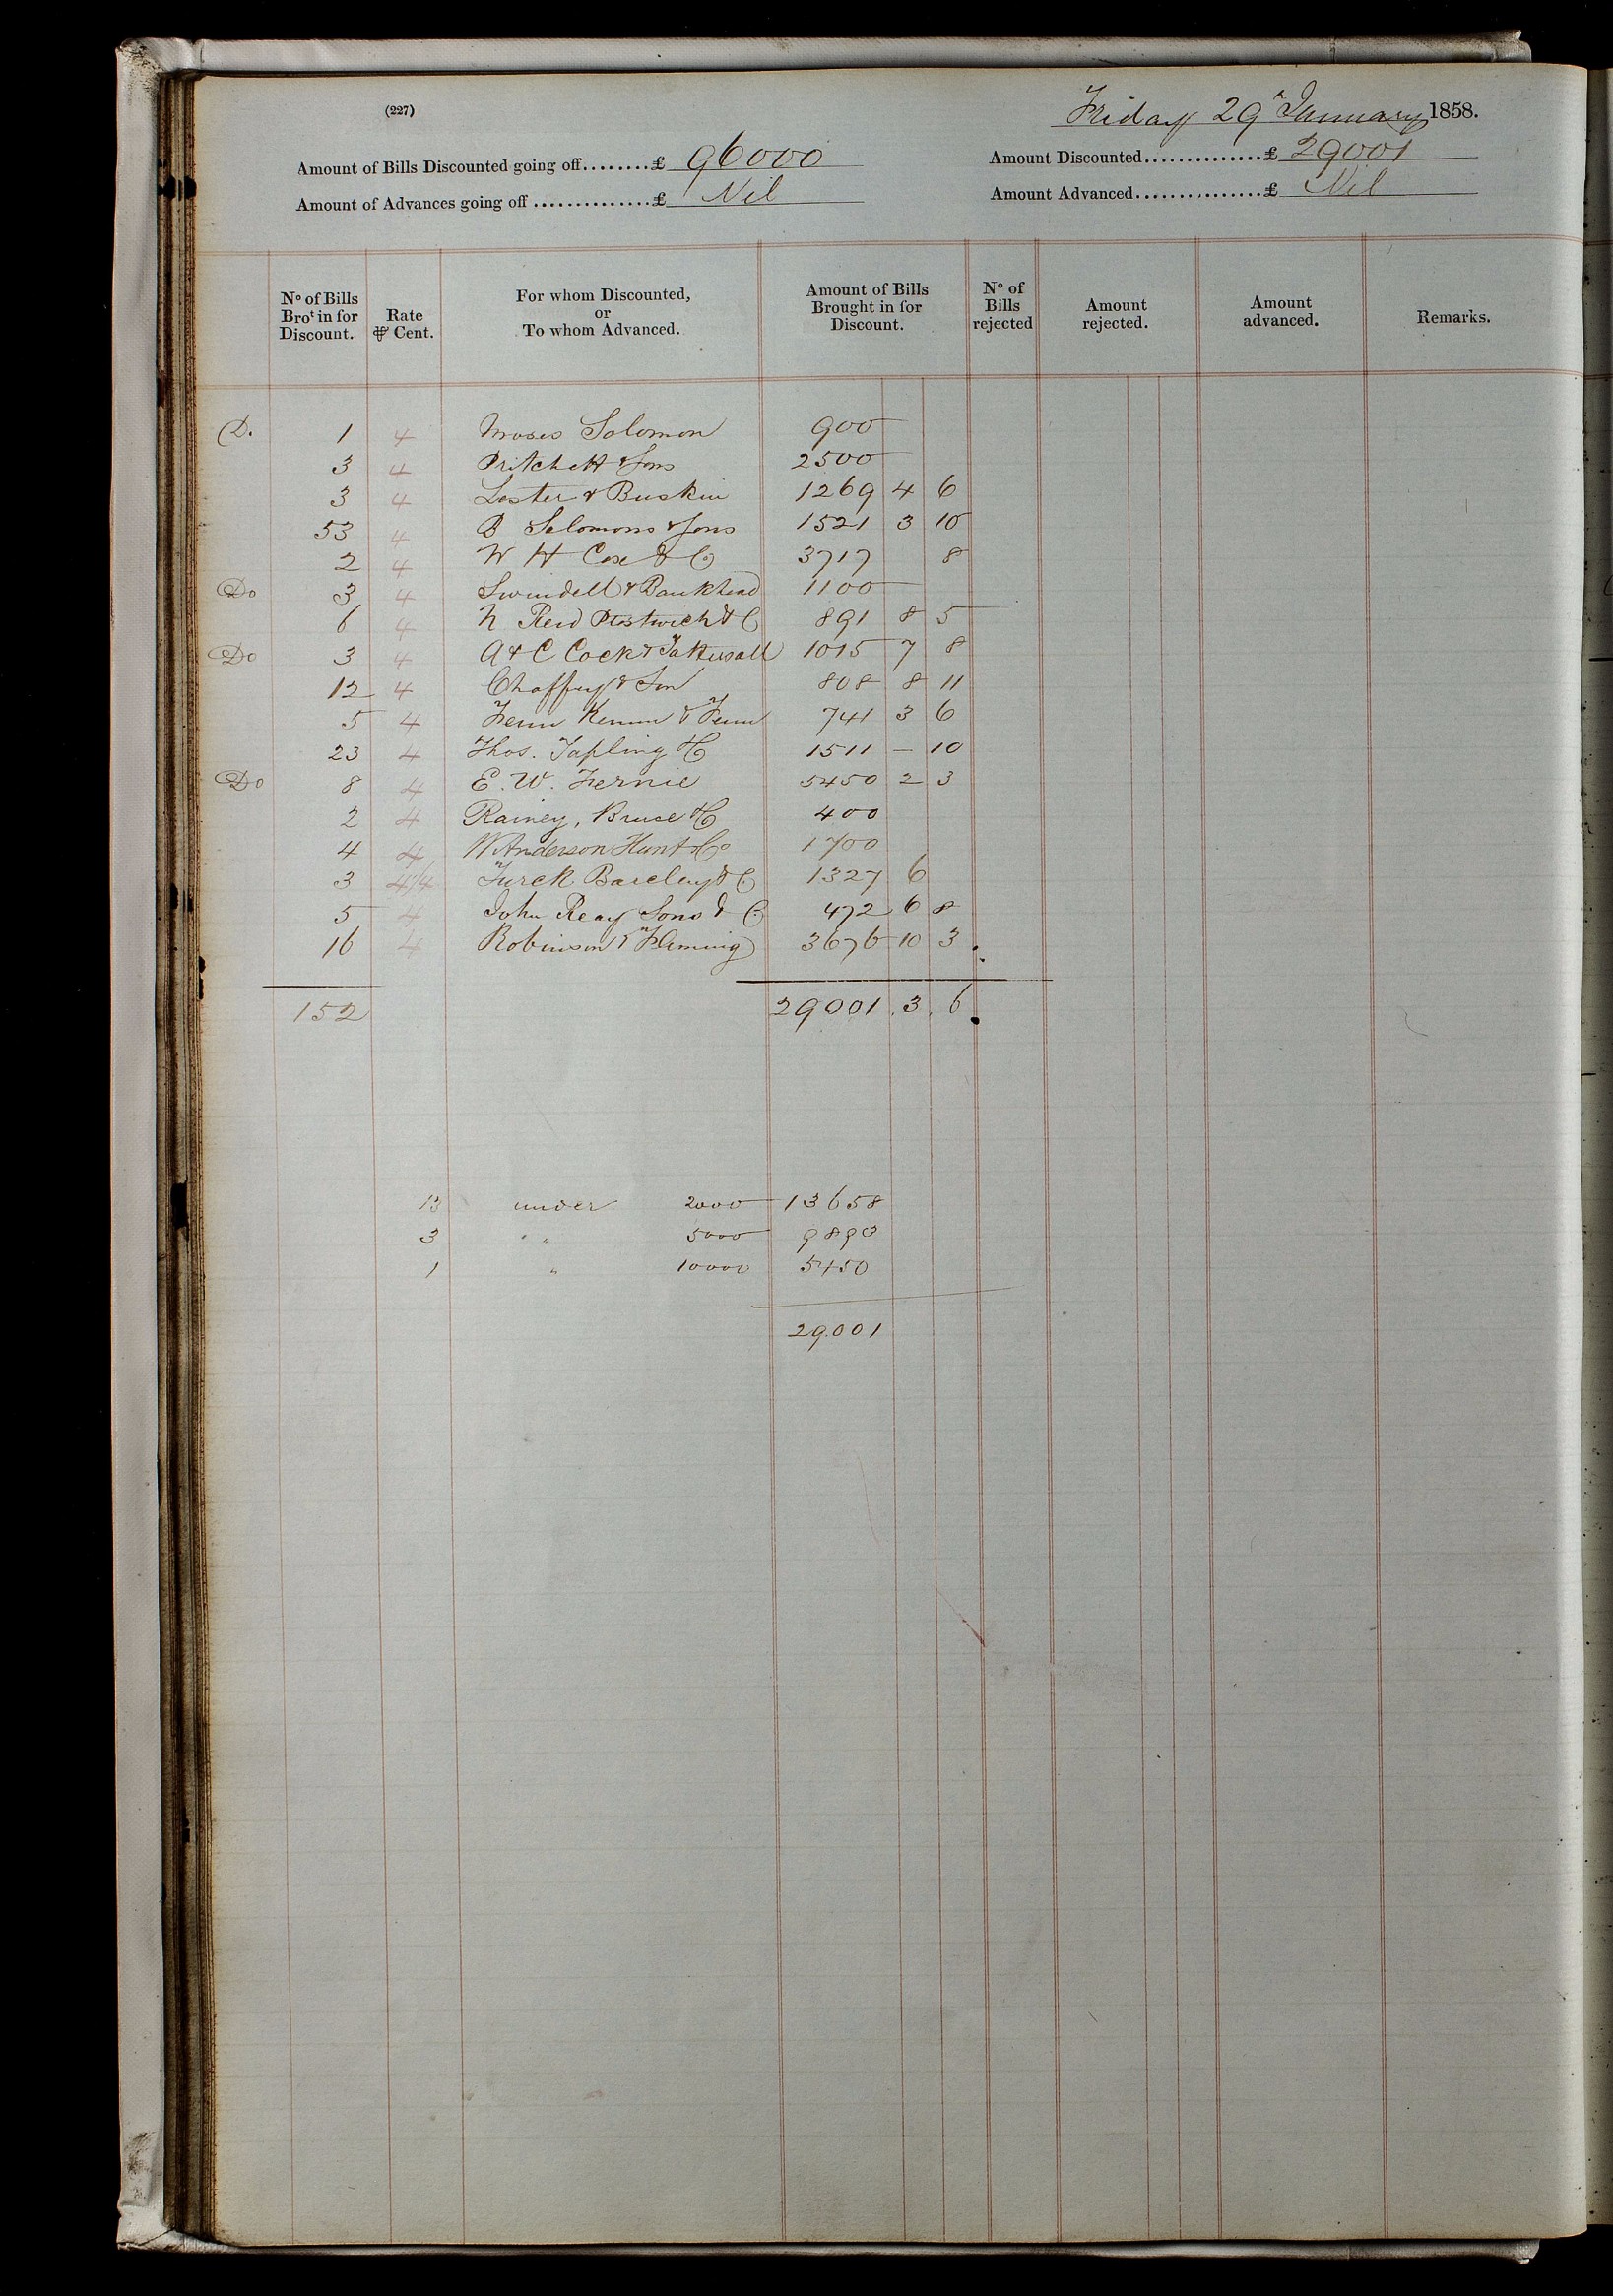 (227)
Friday 29 January 1858.
Amount of Bills Discounted going off........£ 96000
Amount Discounted..............£ 29001
Amount of Advances going off ...............£ Nil
Amount Advanced................£ Nil
No of Bills Brot in for Discount. Rate ⅌ Cent. For whom Discounted, or To whom Advanced. Amount of Bills Brought in for Discount. No of Bills rejected Amount rejected. Amount advanced. Remarks.
D. 1 4 Moses Solomon 900
3 4 Pritchett & Sons 2500
3 4 Lester & Buskin 1269 4 6
53 4 B Solomons & Sons 1521 3 10
2 4 W H Cox & Co 3717 8
Do 3 4 Swindell & Bankhead 1100
6 4 N Reid Prestwich & Co 891 8 5
Do 3 4 A & C Cock & Tattersall 1015 7 8
12 4 Chaffey & Son 808 8 11
5 4 Fenn & Fenn 741 3 6
23 4 Thos. Tapling & Co 1511 – 10
Do 8 4 E. W. Fernie 5450 2 3
2 4 Rainey, Bruce & Co 400
4 4 W Anderson Hunt & Co 1700
3 4/4 Barclay & Co 1327 6
5 4 John Reay Sons & Co 472 6 8
16 4 Robinson & Fleming 3676 10 3
152 29001 . 3 . 6
13 under 2000 13658
3 " " 5000 9893
1 " 10000 5450
29.001